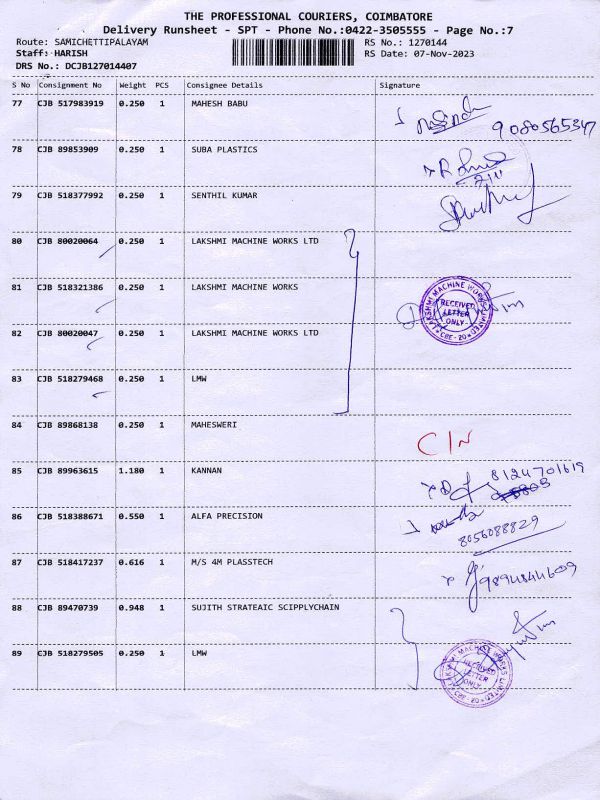 THE PROFESSIONAL COURIERS, COIMBATORE
Delivery Runsheet - SPT - Phone No.:0422-3505555 - Page No.:7
Route: SAMICHETTIPALAYAM RS No.: 1270144
Staff: HARISH RS Date: 07-Nov-2023
DRS No.: DCJB127014407
S No Consignment No Weight PCS Consignee Details Signature
77 CJB 517983919 0.250 1 MAHESH BABU
9080565347
78 CJB 89853909 0.250 1 SUBA PLASTICS
79 CJB 518377992 0.250 1 SENTHIL KUMAR
80 CJB 80020064 0.250 1 LAKSHMI MACHINE WORKS LTD
81 CJB 518321386 0.250 1 LAKSHMI MACHINE WORKS
LAKSHMI MACHINE WORKS LIMITED
RECEIVED
LETTER
ONLY
CBE - 20
82 CJB 80020047 0.250 1 LAKSHMI MACHINE WORKS LTD
83 CJB 518279468 0.250 1 LMW
84 CJB 89868138 0.250 1 MAHESWERI
C/N
85 CJB 89963615 1.180 1 KANNAN 8124701619
86 CJB 518388671 0.550 1 ALFA PRECISION
8056088829
87 CJB 518417237 0.616 1 M/S 4M PLASSTECH
88 CJB 89470739 0.948 1 SUJITH STRATEAIC SCIPPLYCHAIN
89 CJB 518279505 0.250 1 LMW
LAKSHMI MACHINE WORKS LIMITED
RECEIVED
LETTER
ONLY
CBE - 20